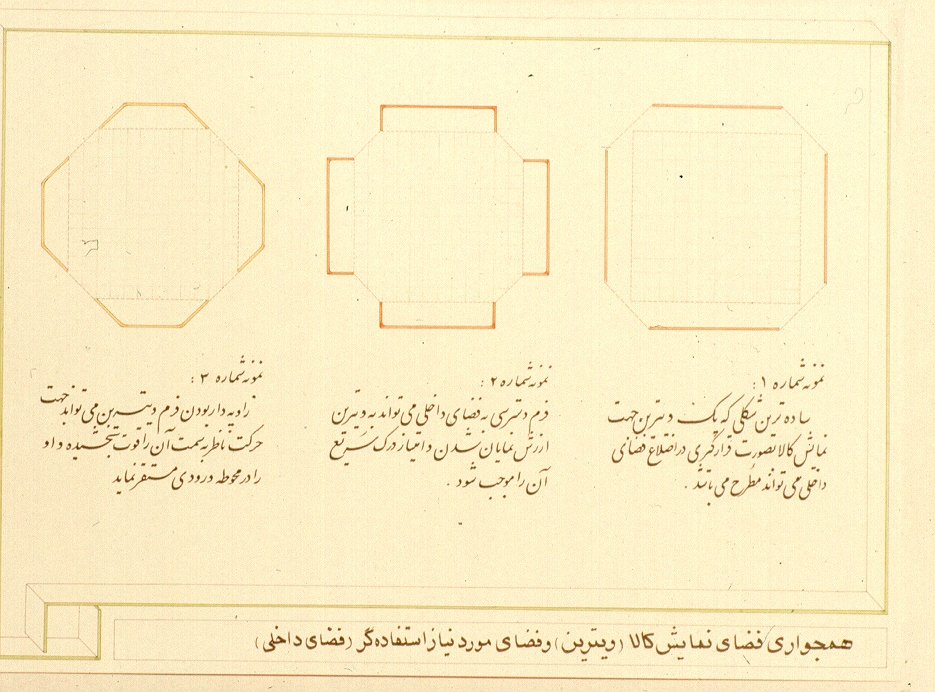 نمونه شماره ۱ :
ساده ترین شکلی که یک ویترین جهت
نمایش کالا بصورت قرارگیری در اضلاع فضای
داخلی می تواند مطرح می باشد .
نمونه شماره ۲ :
فرم دسترسی به فضای داخلی می تواند به ویترین
ارزش نمایان شدن و امتیاز درک سریع
آن را موجب شود .
نمونه شماره ۳ :
زاویه دار بودن فرم ویترین می تواند جهت
حرکت ناظر به سمت آن را قوت بخشیده و او
را در محوطه ورودی مستقر نماید
همجواری فضای نمایش کالا (ویترین) و فضای مورد نیاز استفاده گر (فضای داخلی)